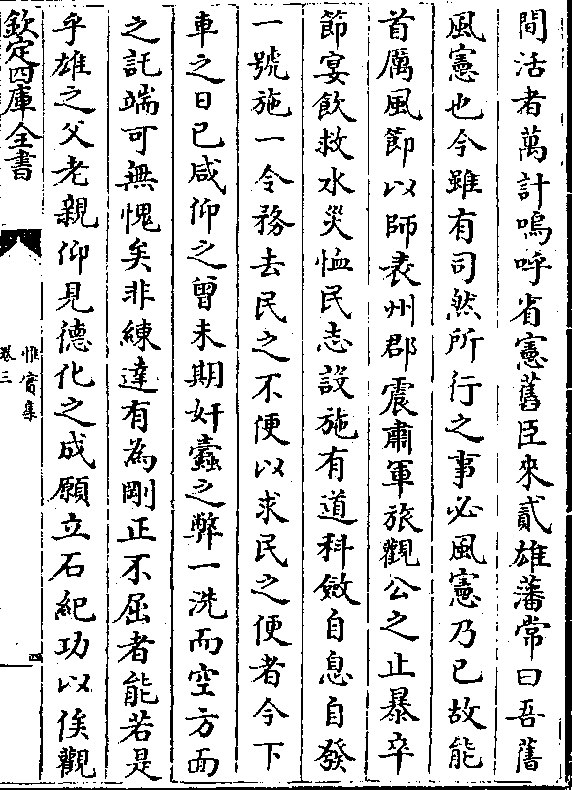 間活者萬計嗚呼省憲舊臣來貳雄藩常曰吾舊
風憲也今雖有司然所行之事必風憲乃已故能
首厲風節以師表州郡震肅軍旅觀公之止暴卒
節宴飲救水災恤民志設施有道科斂自息自發
一號施一令務去民之不便以求民之便者今下
車之日已咸仰之曾未期奸蠹之弊一洗而空方面
之託端可無愧矣非練達有為剛正不屈者能若是
乎雄之父老親仰見德化之成願立石紀功以俟觀
欽定四庫全書
惟實集
卷三
四